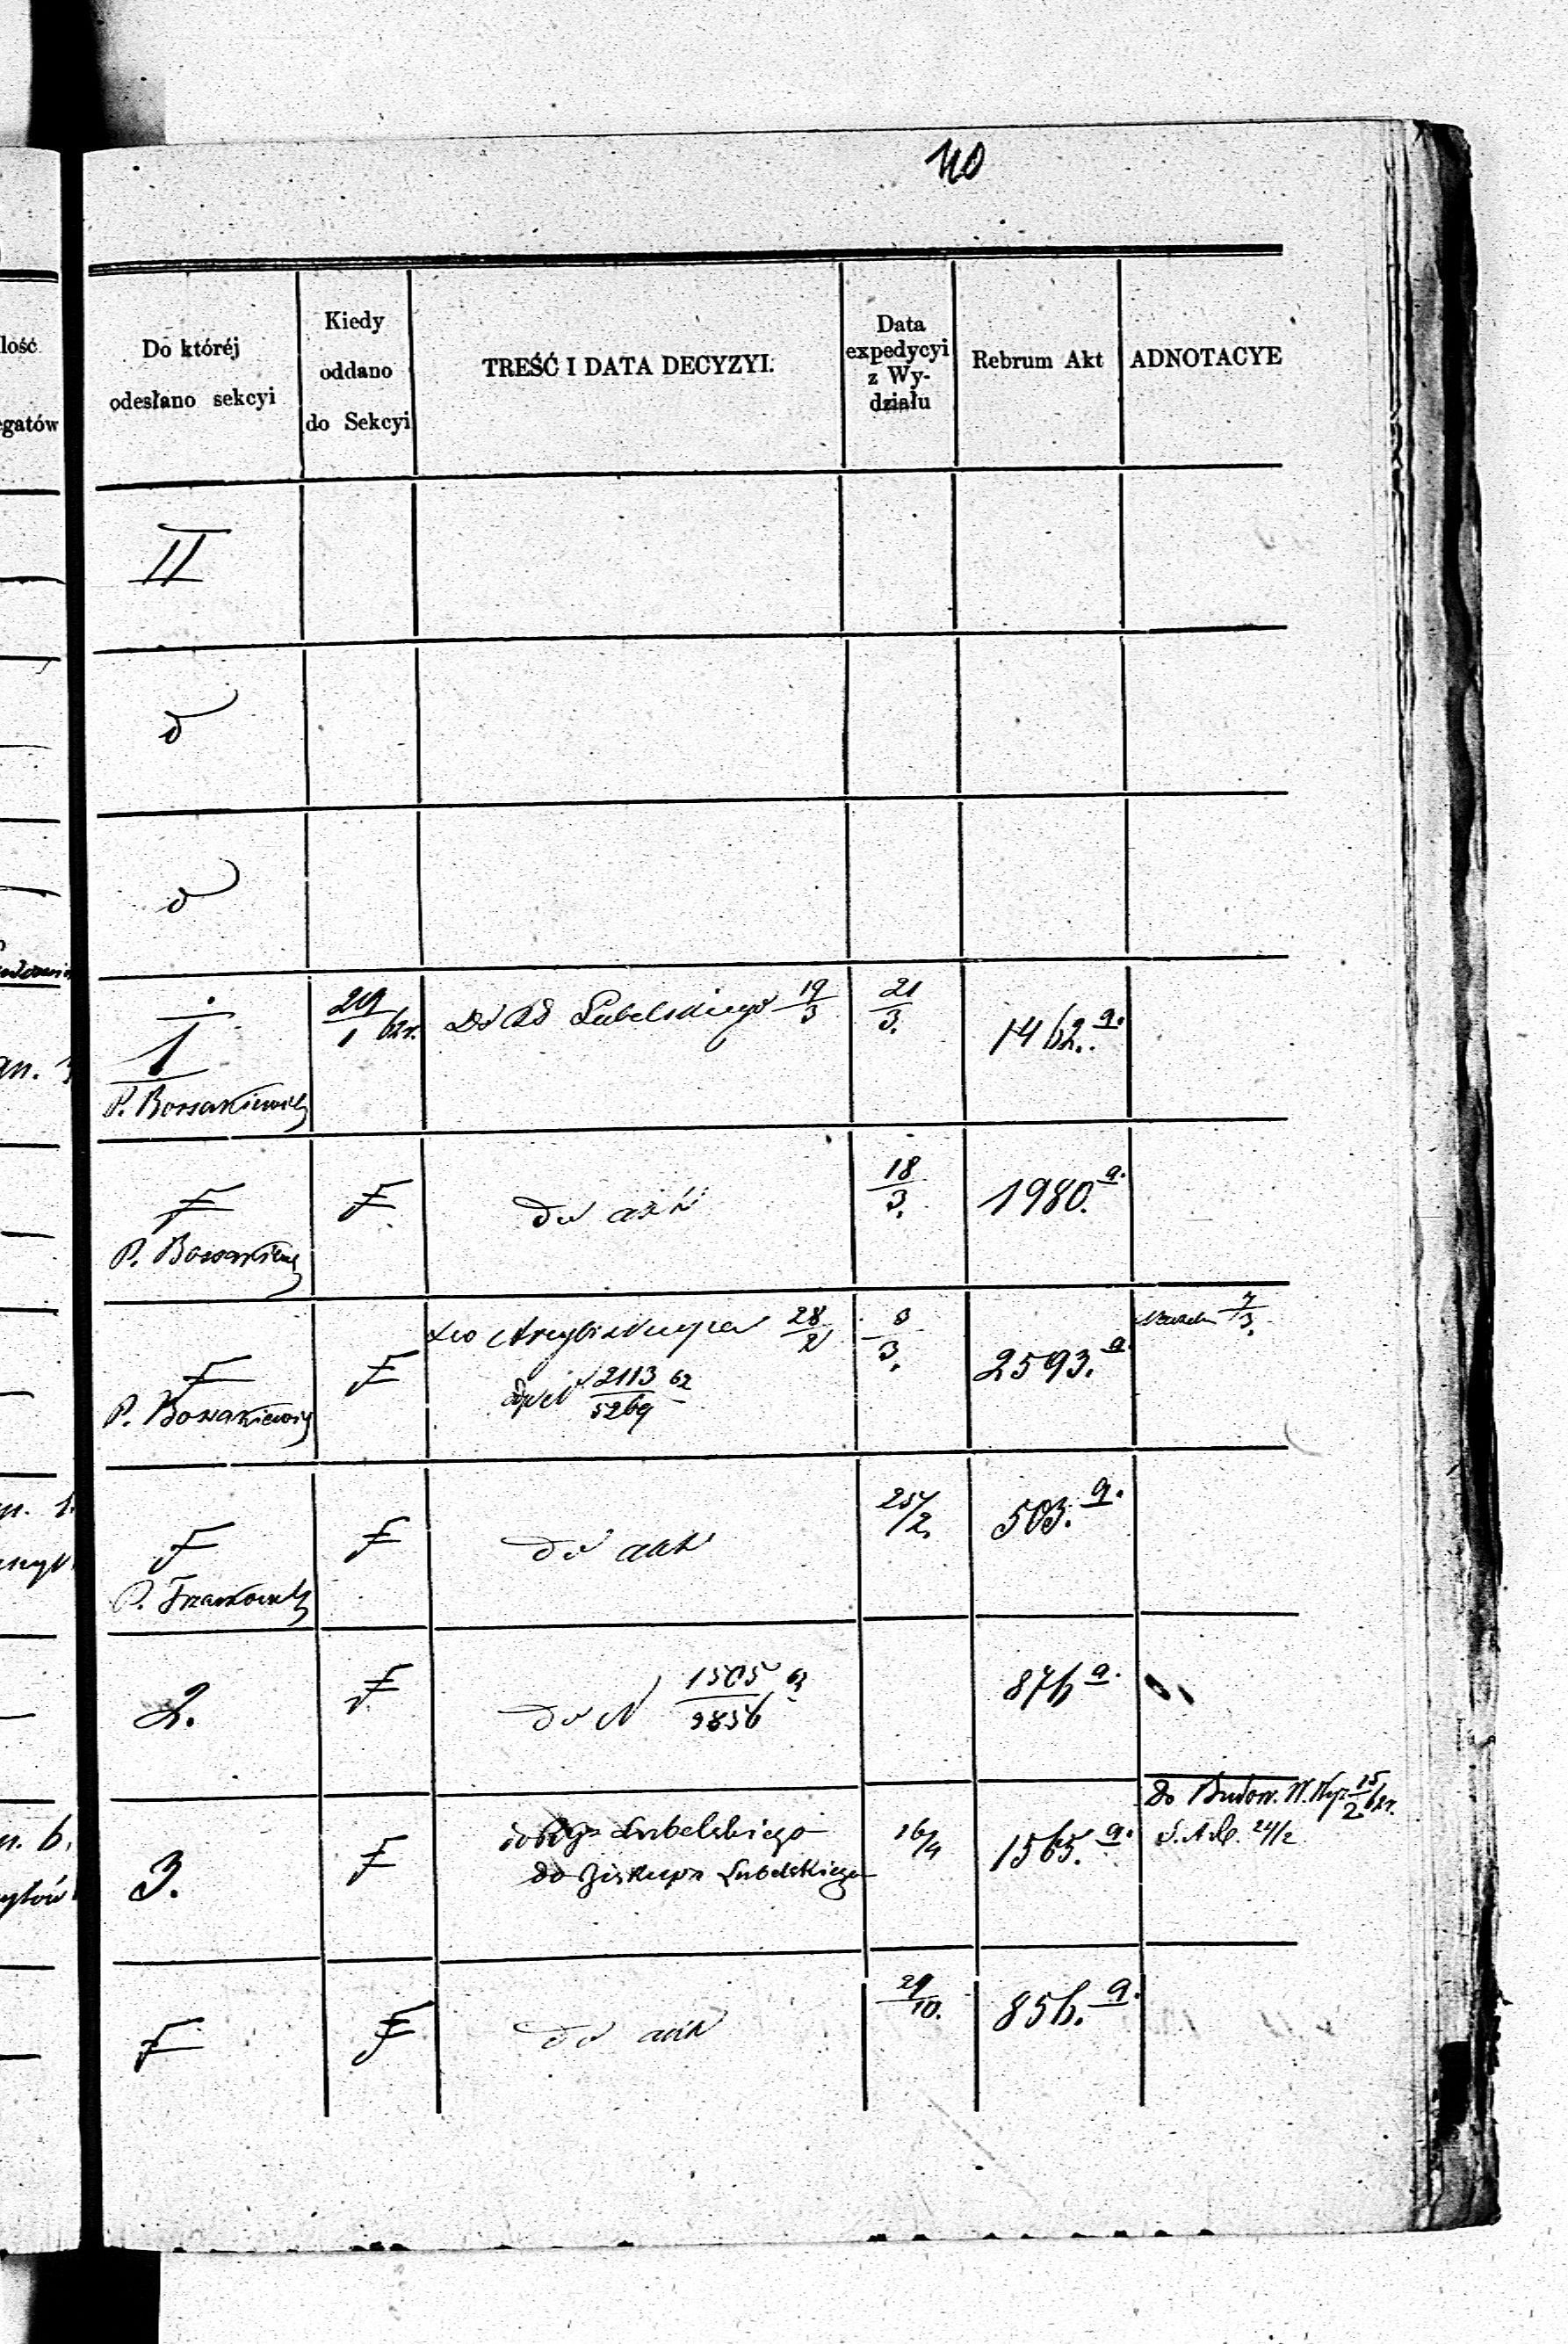 40
Do któréj odesłano sekcyi
Kiedy oddano do Sekcyi
TREŚĆ I DATA DECYZYI.
Data expedycyi z Wydziału
Rebrum Akt
ADNOTACYE
II
d
d
1 P. Bossakiewicz
29/1 62r.
Do Lubelskiego 19/3
21/3.
1462. a.
F P. Bossakiewicz
F
do akt
18/3.
1980. a.
F P. Bossakiewicz
F
do Arcybiskupa 28/2
2113/5269 62
3/3.
2593. a
7/3.
F
F
do akt
25/2.
503. a.
2.
F
do N 1505/9856 62
876 a.
3.
F
Lubelskiego
do Biskupa Lubelskiego
16/4
1565. a.
do Budow. 15/2 62r.
24/2
F
F
do akt
29/10.
856. a.